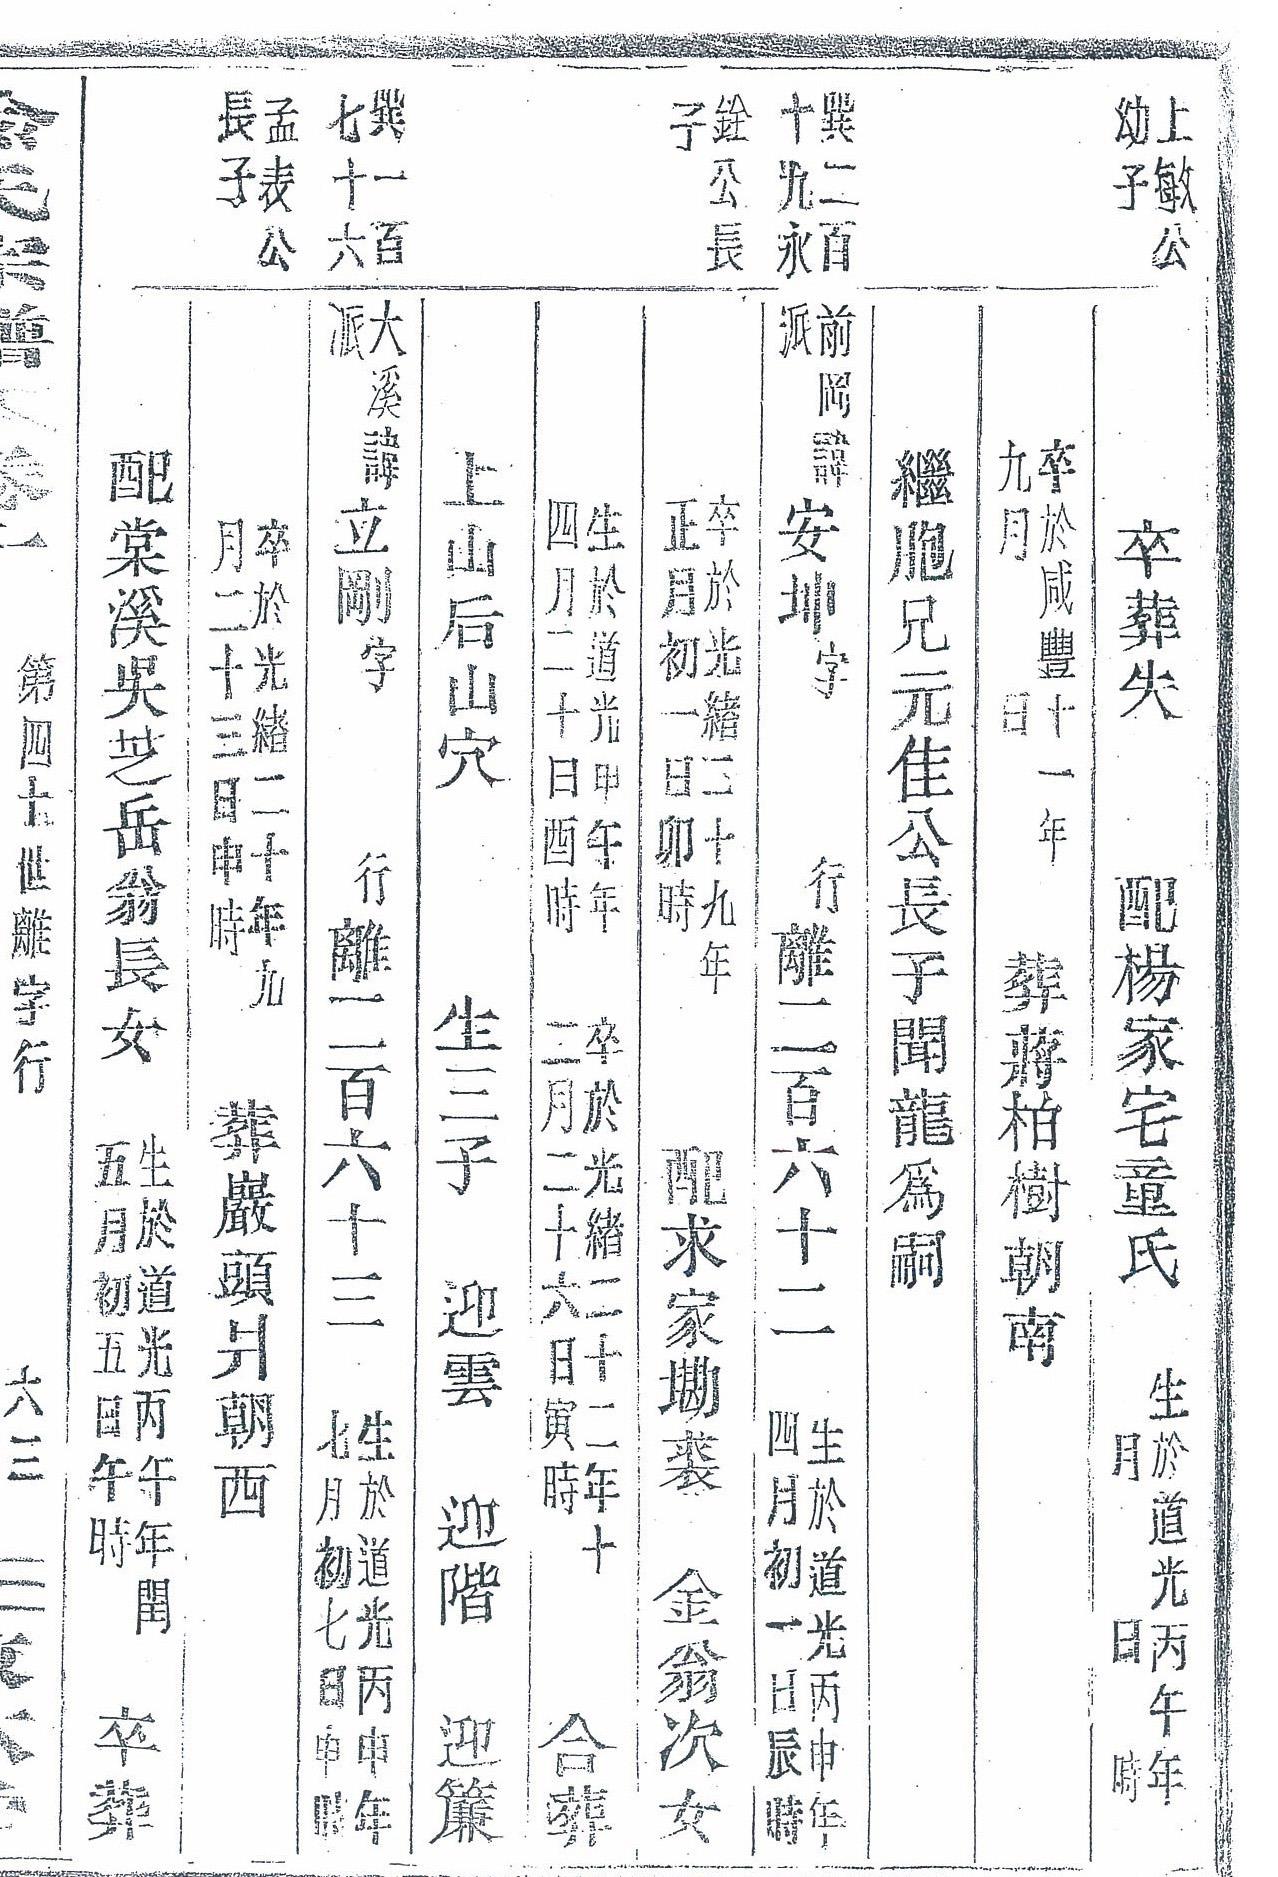 上敏公
幼子
卒葬失 配楊家宅童氏 生於道光丙午年
月 日 時
卒於咸豐十一年
九月 日
葬蔣柏樹朝南
繼胞兄元佳公長子聞龍爲嗣
巽二百
十九永
前岡諱
派
安坤字 行離二百六十二 生於道光丙申年
四月初一日辰時
銓公長
子
卒於光緒三十九年
正月初一日卯時
配求家塝裘 金翁次女
生於道光甲午年
四月二十日酉時
卒於光緒二十二年十
二月二十六日寅時
合葬
上山后山穴 生三子 迎雲 迎階 迎簾
巽一百
七十六
大溪諱
派
立剛字 行離二百六十三 生於道光丙申年
七月初七日申時
孟表公
長子
卒於光緒二十年九
月二十三日申時
葬巖頭爿朝西
配棠溪吳芝岳翁長女 生於道光丙午年閏
五月初五日午時
卒葬
宗譜 卷一 第四十世離字行 六三